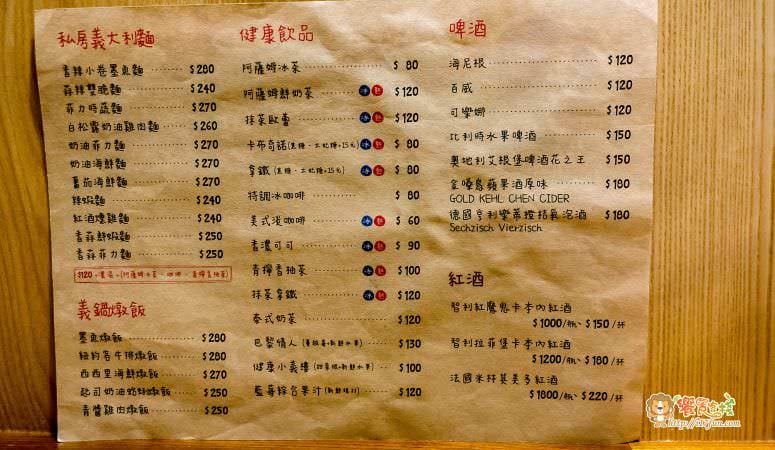 私房義大利麵
香辣小卷墨魚麵 $280
蒜辣雙脆麵 $240
菲力時蔬麵 $270
白松露奶油雞肉麵 $260
奶油菲力麵 $270
奶油海鮮麵 $270
蕃茄海鮮麵 $270
辣蝦麵 $240
紅酒燉雞麵 $240
香蒜鮮蝦麵 $250
香蒜菲力麵 $250
義鍋燉飯
墨魚燉飯 $280
紐約客牛排燉飯 $280
西西里海鮮燉飯 $270
起司奶油蛤蜊燉飯 $250
青醬雞肉燉飯 $250
健康飲品
阿薩姆冰茶 $80
阿薩姆鮮奶茶 冰 熱 $120
抹茶歐蕾 冰 熱 $120
卡布奇諾(焦糖、太妃糖+15元) 冰 熱 $80
拿鐵(焦糖、太妃糖+15元) 冰 熱 $80
特調冰咖啡 $80
美式淡咖啡 冰 熱 $60
香濃可可 冰 熱 $90
青檸香柚茶 冰 熱 $100
抹茶拿鐵 冰 熱 $120
泰式奶茶 $120
巴黎情人 $130
健康小義樓 $100
藍莓綜合果汁 $120
啤酒
海尼根 $120
百威 $120
可樂娜 $120
比利時水果啤酒 $150
奧地利艾根堡啤酒花之王 $150
金嗓島蘋果酒原味 $180
GOLD KEHL CHEN CIDER
德國亨利樂蒂橙桔氣泡酒 $180
Sechzisch Vierzisch
紅酒
智利紅魔鬼卡本內紅酒
$1000/瓶、$150/杯
智利拉菲堡卡本內紅酒
$1200/瓶、$180/杯
法國米籽莫美多紅酒
$1800/瓶、$220/杯
饗食在桂
http://bwfun.com